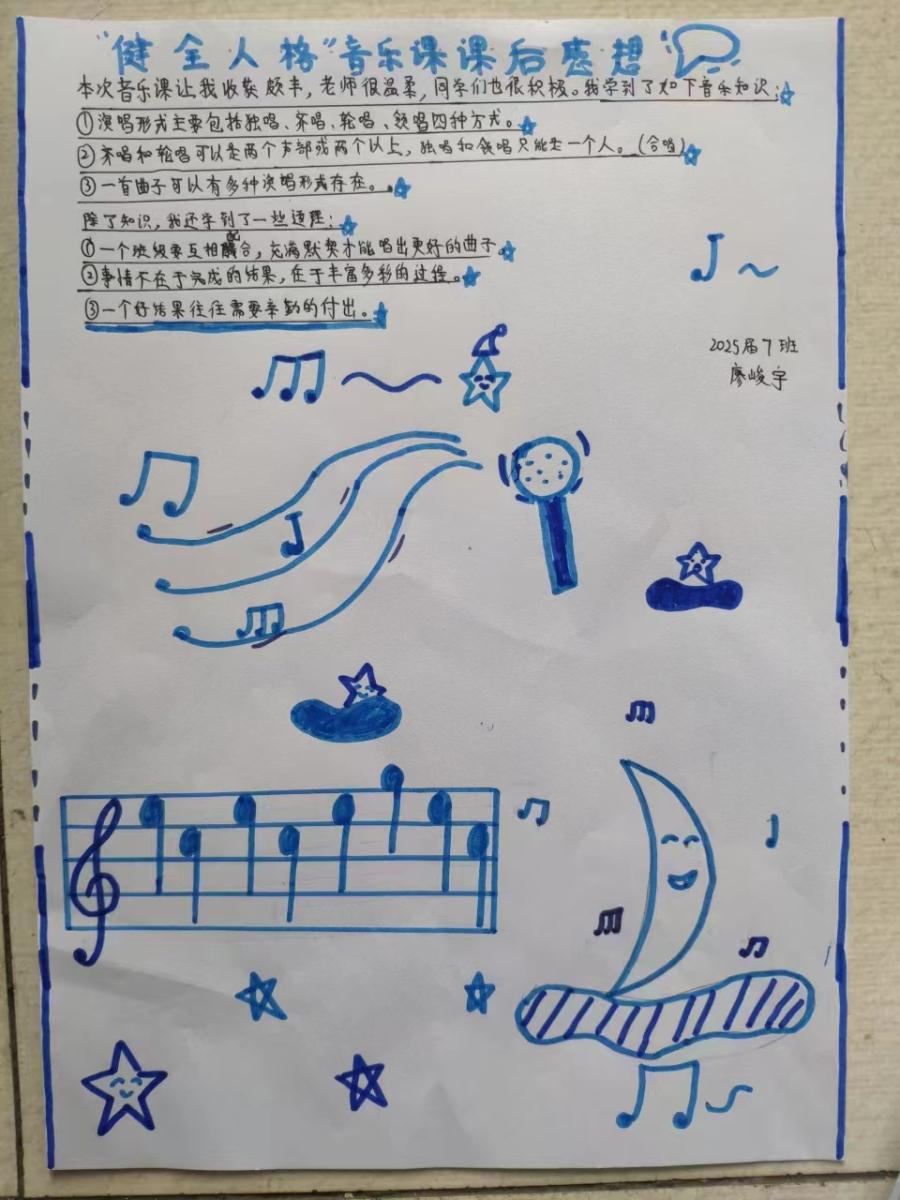 “健全人格”音乐课课后感想
本次音乐课让我收获颇丰，老师很温柔，同学们也很积极。我学到了如下音乐知识：
①演唱形式主要包括独唱、齐唱、轮唱、领唱四种方式。
②齐唱和轮唱可以是两个声部或两个以上，独唱和领唱只能是一个人。（合唱）
③一首曲子可以有多种演唱形式存在。
除了知识，我还学到了一些道理：
①一个班级要互相配合，充满默契才能唱出更好的曲子。
②事情不在于完成的结果，在于丰富多彩的过程。
③一个好结果往往需要辛勤的付出。
2025届7班
廖峻宇